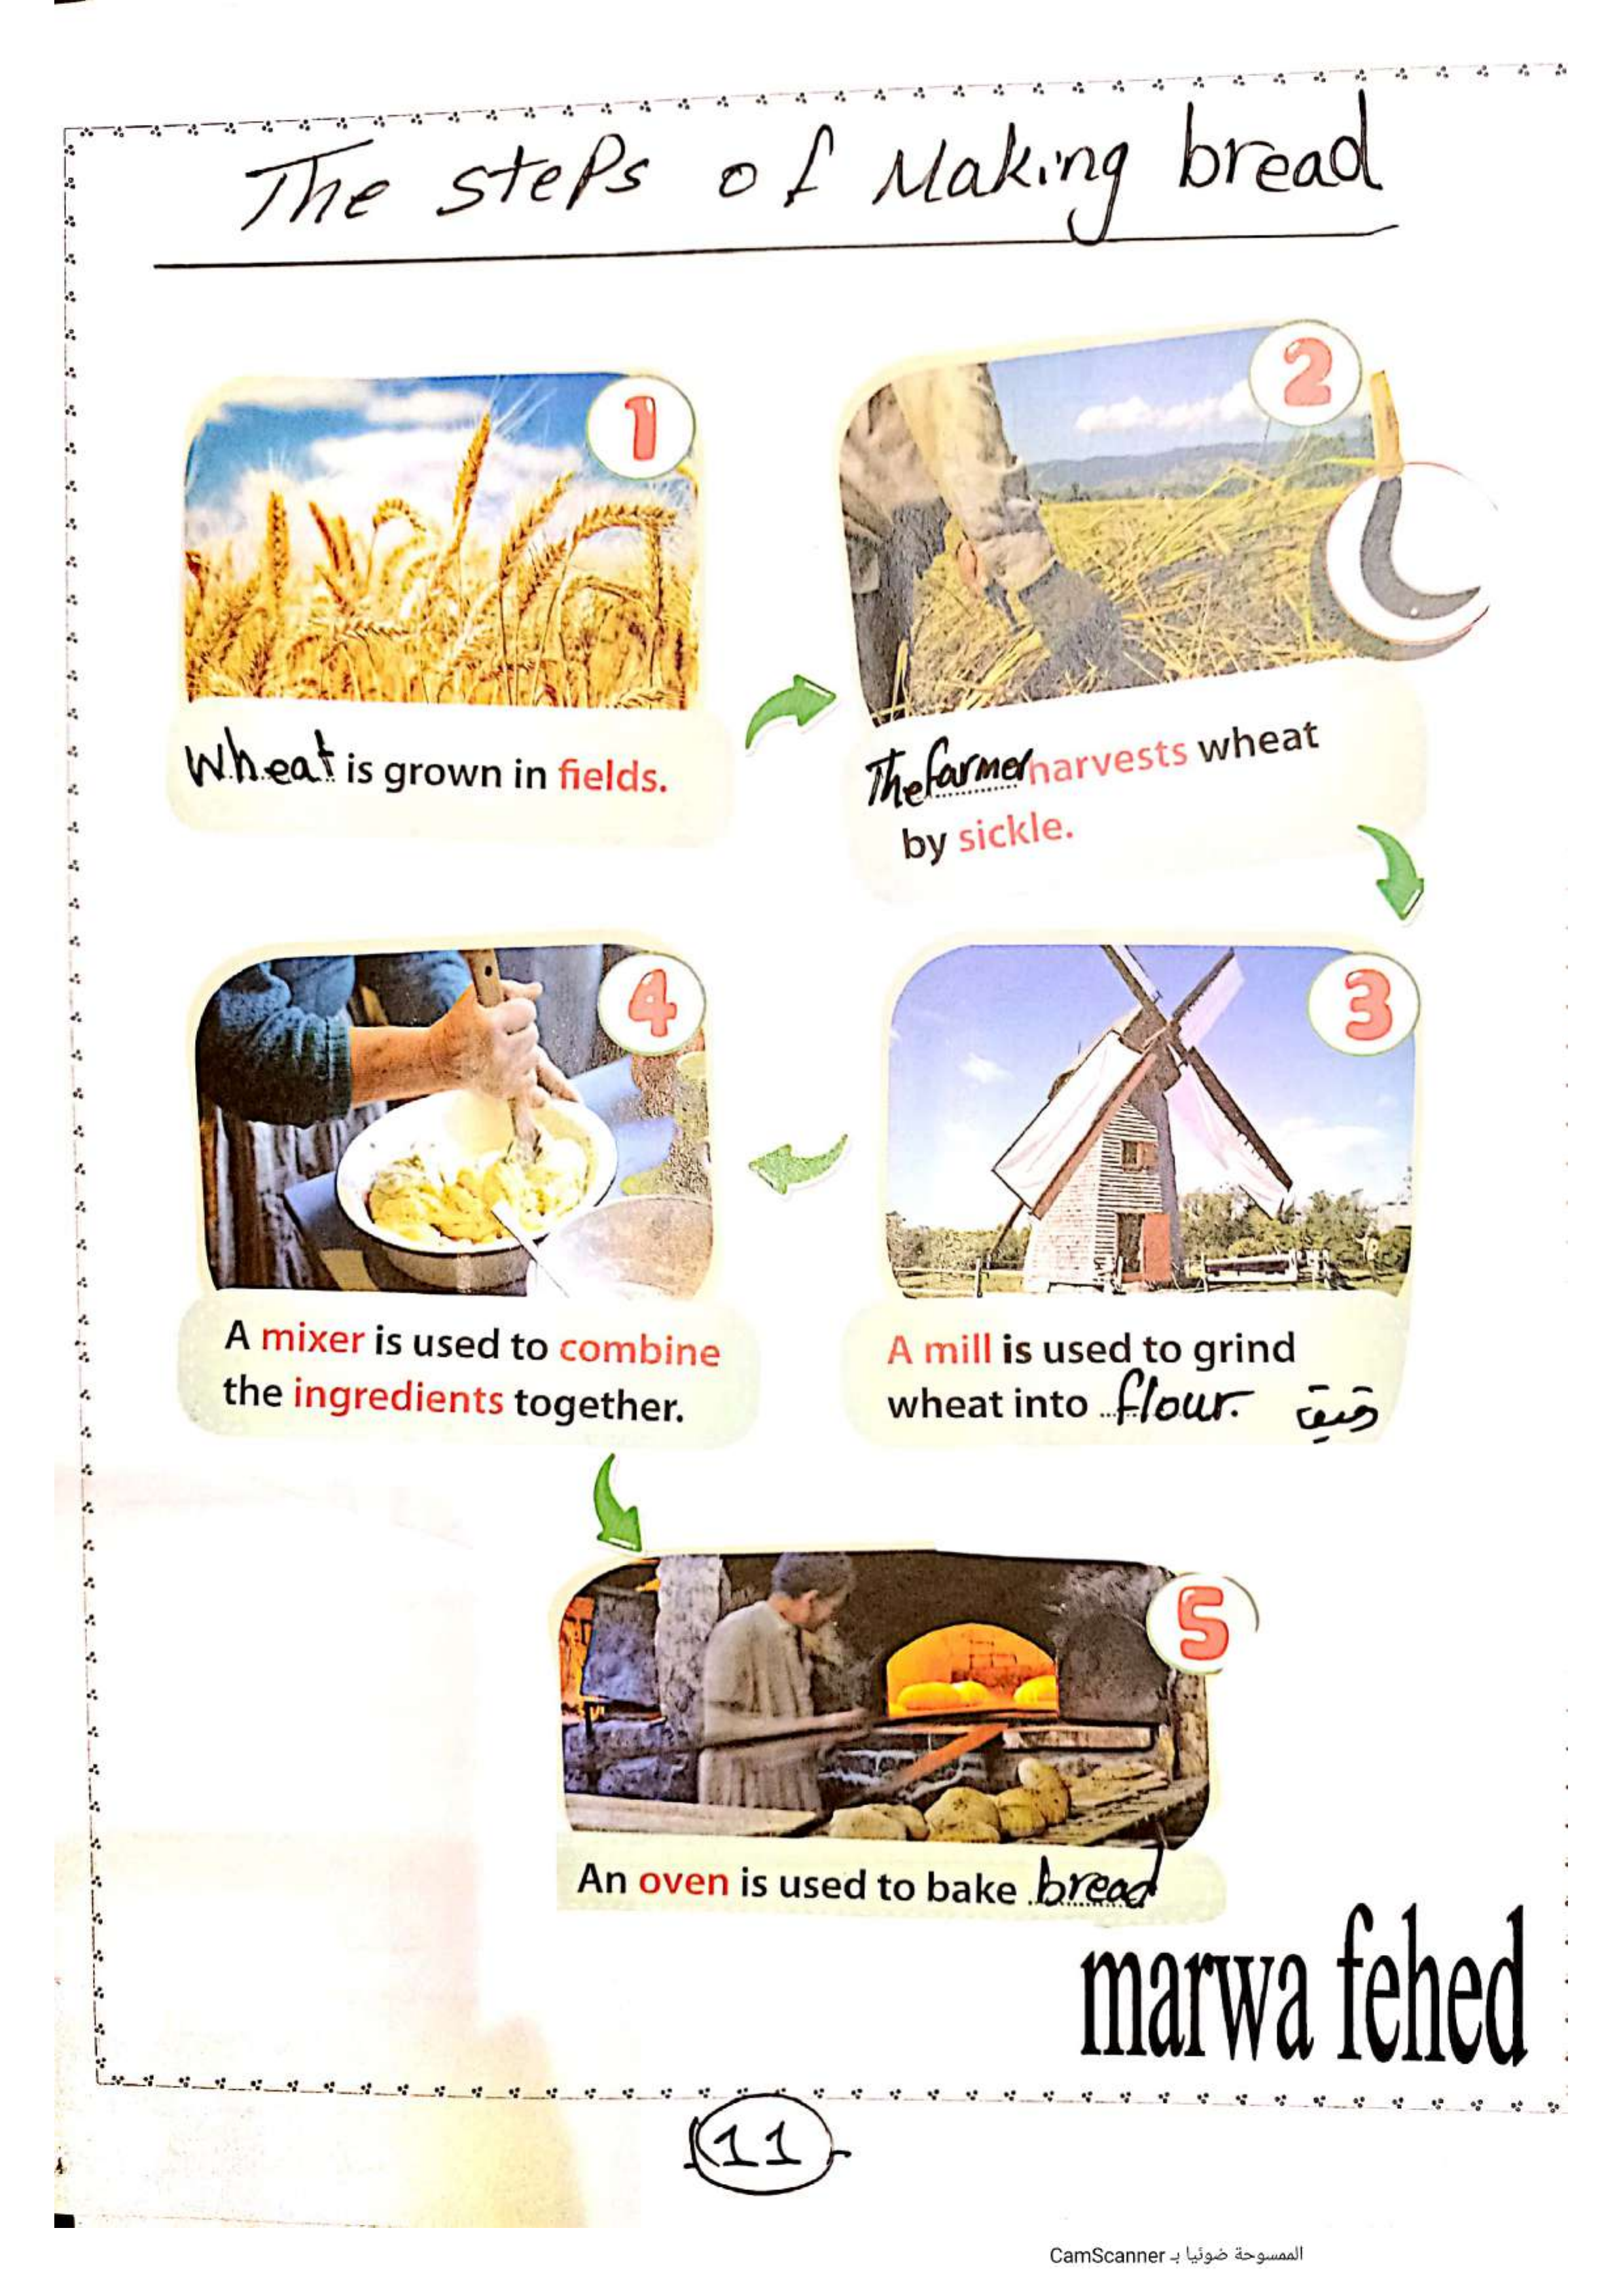 The steps of Making bread
1
2
Wheat is grown in fields.
The farmer harvests wheat
by sickle.
4
3
A mixer is used to combine
the ingredients together.
A mill is used to grind
wheat into flour. دقيق
5
An oven is used to bake bread
marwa fehed
11
الممسوحة ضوئيا بـ CamScanner